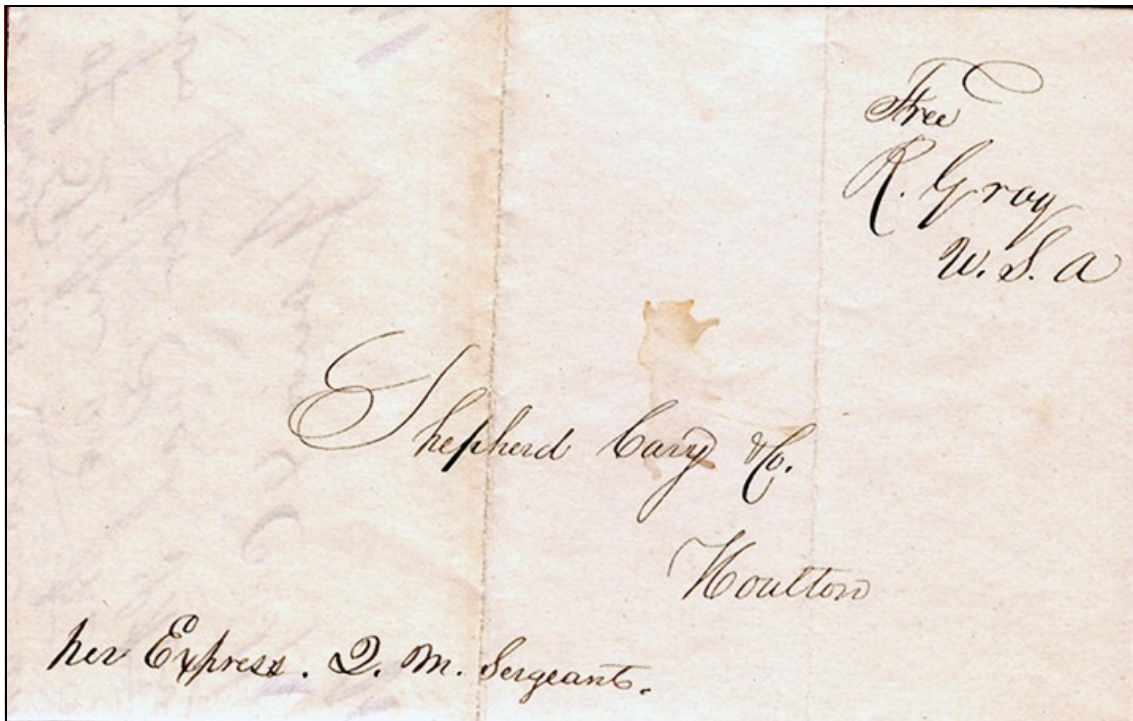 Free
R. Gray
U. S. A
Shepherd Cary & Co.
Houlton
per Express. Q. M. Sergeant.